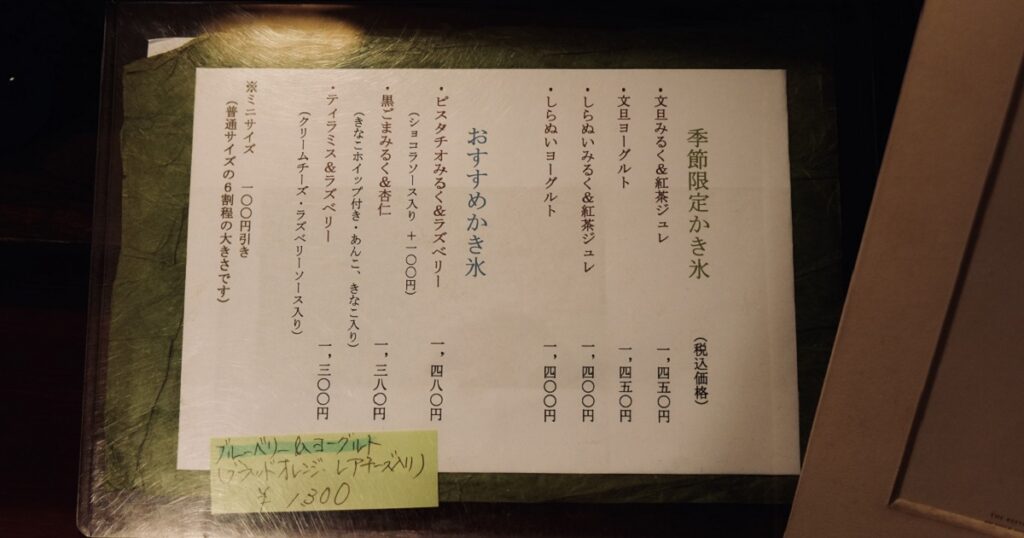 季節限定かき氷 (税込価格)
・文旦みるく&紅茶ジュレ 一,四五〇円
・文旦ヨーグルト 一,四五〇円
・しらぬいみるく&紅茶ジュレ 一,四〇〇円
・しらぬいヨーグルト 一,四〇〇円
おすすめかき氷
・ピスタチオみるく&ラズベリー 一,四八〇円
(ショコラソース入り +一〇〇円)
・黒ごまみるく&杏仁 一,三八〇円
(きなこホイップ付き・あんこ、きなこ入り)
・ティラミス&ラズベリー 一,三〇〇円
(クリームチーズ・ラズベリーソース入り)
※ミニサイズ 一〇〇円引き
(普通サイズの6割程の大きさです)
ブルーベリー&ヨーグルト
(ブラッドオレンジ レアチーズ入り)
¥1300